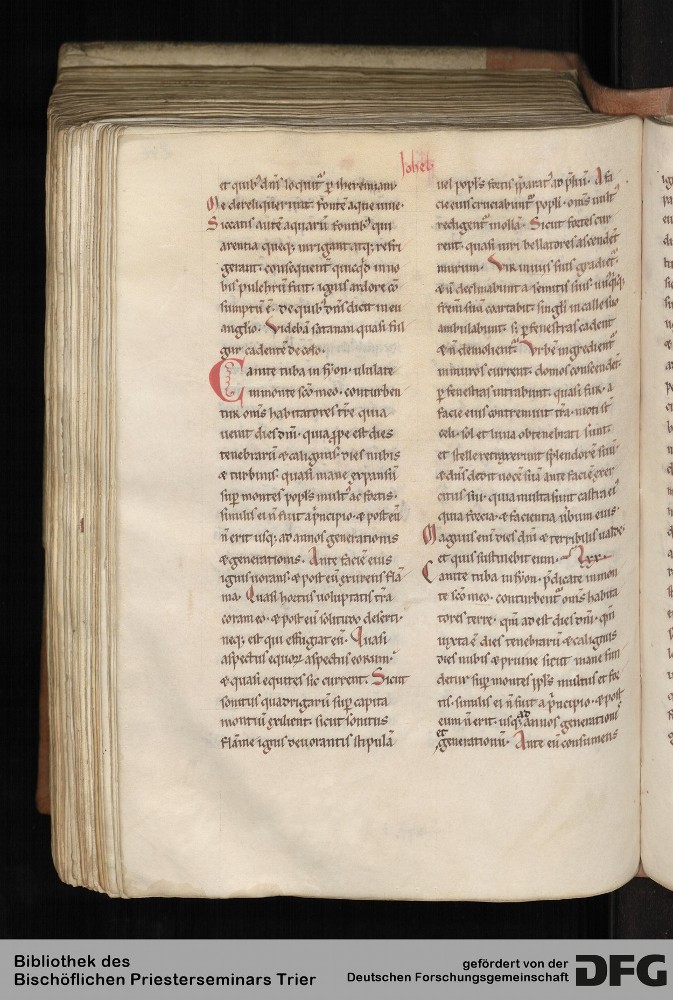 Johel
et quib; dñs loquit᷑ p iheremiam
Me dereliquerunt fontē aque uiue.
Siccatis autē aquarū fontib; qui
arentia queq; irrigant atq; refri
gerant. consequent᷑ quicq̄d in no
bis pulchrū fuit. ignis ardore cō
sumptū ē. de quib; dñs dicit in eu
anglio. Videbā satanan quasi ful
gur cadentē de celo.
Canite tuba in syon. ululate
in monte scō meo. conturben
tur om̄s habitatores t̄re quia
uenit dies dñi. quia ꝓpe est dies
tenebrarū & caliginis. dies nubis
& turbinis. quasi mane expansū
sup̄ montes popl̄s mult᷒ ac fortis.
similis ei ñ fuit a p̄ncipio. & post eū
ñ erit usq; ad annos generationis
& generationis. Ante faciē eius
ignis uorans. & post eū exurens flā
ma. Quasi hortus uoluptatis t̄ra
coram eo. & post eū solitudo deserti.
neq; est qui effugiat eū. Quasi
aspectus equoꝝ aspectus eorum.
& quasi equites sic current. Sicut
sonitus quadrigarū sup̄ capita
montiū exilient. sicut sonitus
flāme ignis deuorantis stipulā
uel popl̄s fortis p̄parat᷒ ad p̄liū. A fa
cie eius cruciabunt᷑ popli. om̄s uult᷒
redigent᷑ in ollā. Sicut fortes cur
rent. quasi uiri bellatores ascendēt
murum. Vir in uiis suis gradiet᷑.
& ñ declinabunt a semitis suis. un᷒q̄sq;
frēm suū coartabit. singl̄i in calle suo
ambulabunt. s; p fenestras cadent
& ñ demolient᷑. Vrbē ingredient᷑
in muros current. domos conscendēt.
p fenestras intrabunt. quasi fur. a
facie eius contremuit t̄ra. moti st̄
celi. sol et luna obtenebrati sunt.
et stelle retraxerunt splendorē suū.
& dñs dedit uocē suā ante faciē exer
citus sui. quia multa sunt castra ei᷒
quia fortia & facientia u̅bum eius.
Magnus eni dies dñi & terribilis ualde.
et quis sustinebit eum. LXX.
Canite tuba in syon. p̄dicate in mon
te scō meo. conturbent᷑ om̄s habita
tores terre. qm̄ adest dies dñi. qm̄
iuxta ē dies tenebrarū & caliginis
dies nubis & pruine sicut mane fun
detur sup̄ montes ppl̄s multus et for
tis. similis ei ñ fuit a p̄ncipio. & post
eum ñ erit. usq; ad annos generationū
et generationum. Ante eū consumens
Bibliothek des
Bischöflichen Priesterseminars Trier
gefördert von der
Deutschen Forschungsgemeinschaft
DFG